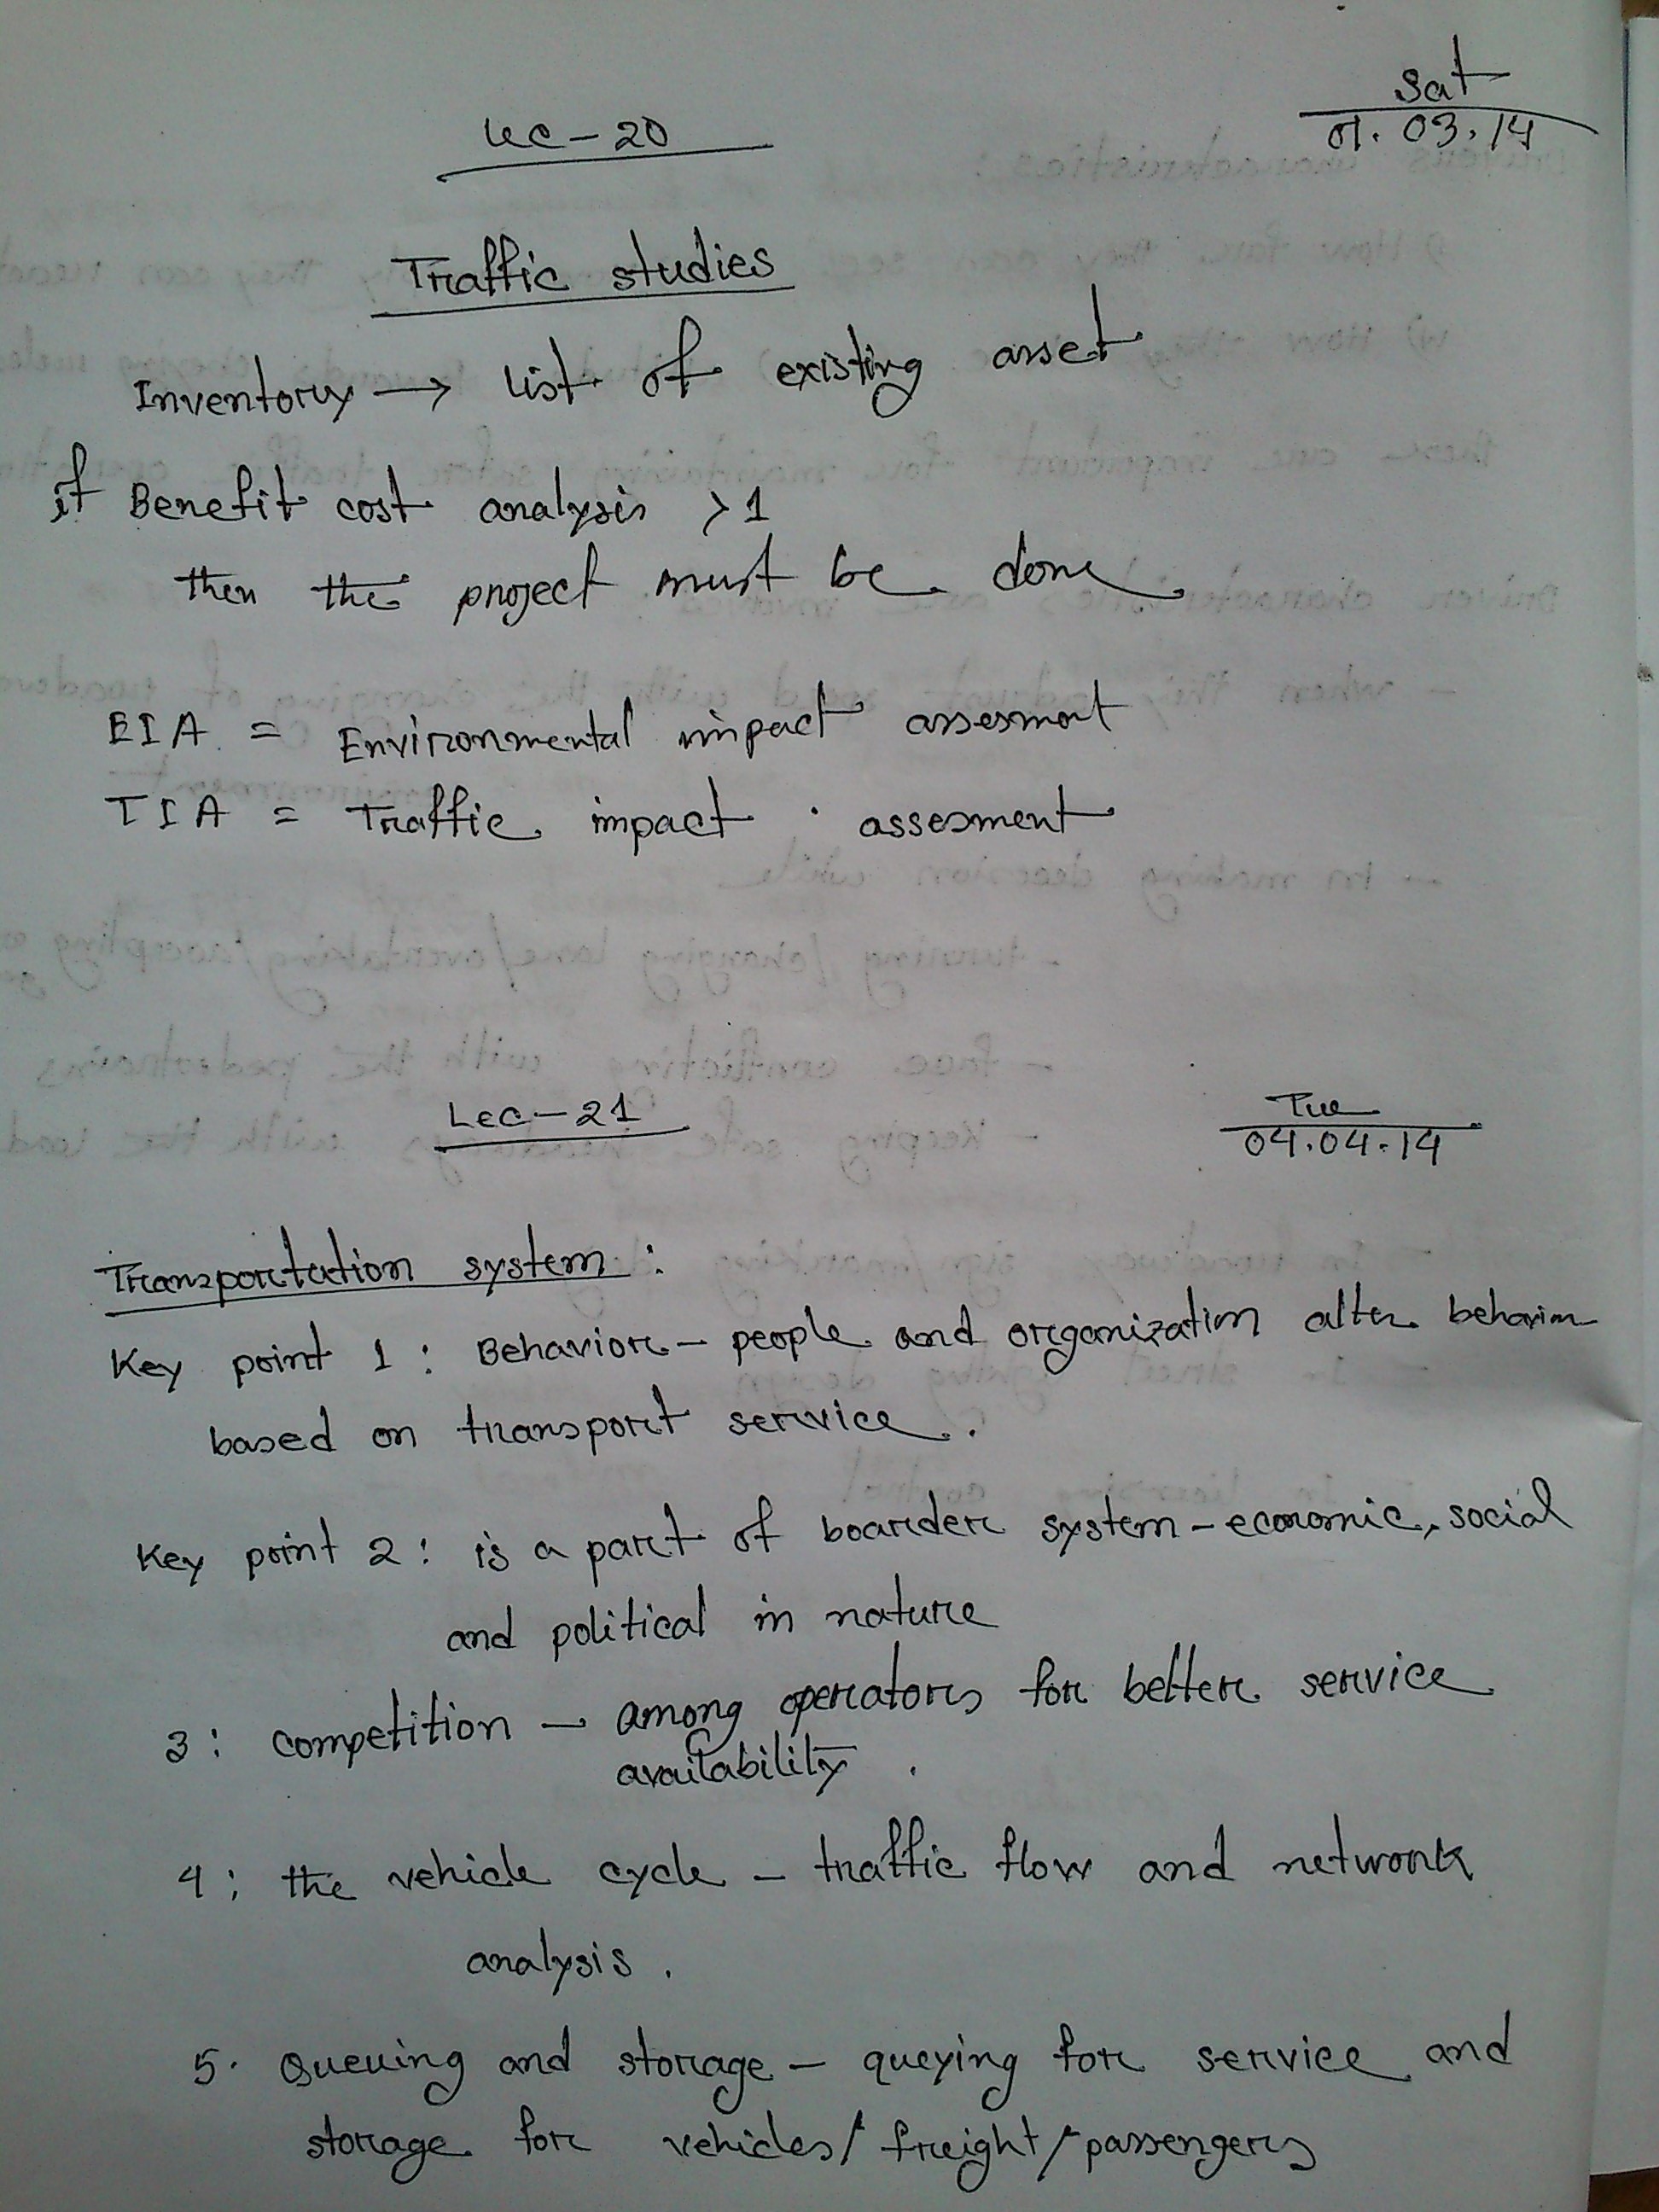 Sat
01.03.14
Lec-20
Traffic studies
Inventory → List of existing asset
if Benefit cost analysis > 1
then the project must be done
EIA = Environmental impact assesment
TIA = Traffic impact assesment
Lec-21
Tue
04.04.14
Transportation system :
Key point 1 : Behavior - people and organization alter behavior
based on transport service.
Key point 2 : is a part of boarder system - economic, social
and political in nature
3 : competition - among operators for better service
availability .
4 : the vehicle cycle - traffic flow and network
analysis .
5. Queuing and storage - queying for service and
storage for vehicles / freight / passengers